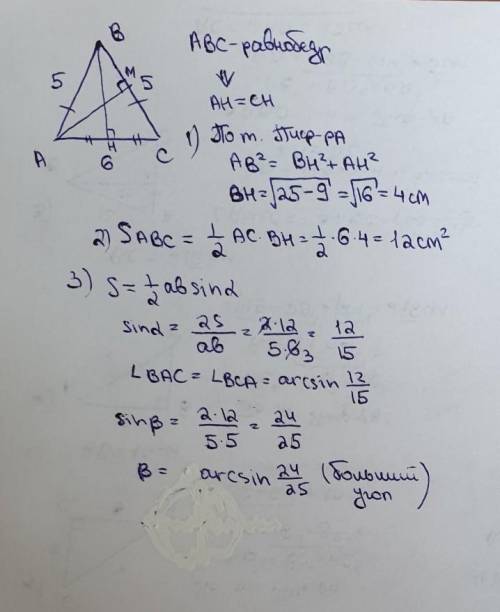 B
ABC-равнобедр
⇓
5
M
5
AH=CH
A
H
C
6
1) По т. Пиф-ра
AB² = BH² + AH²
BH = √25-9 = √16 = 4 см
2) SABC = 1/2 AC · BH = 1/2 · 6 · 4 = 12 см²
3) S = 1/2 ab sin α
sin α = 2S/ab = 2·12/5·6 3 = 12/15
∠BAC = ∠BCA = arcsin 12/15
sin β = 2·12/5·5 = 24/25
β = arcsin 24/25 (больший угол)